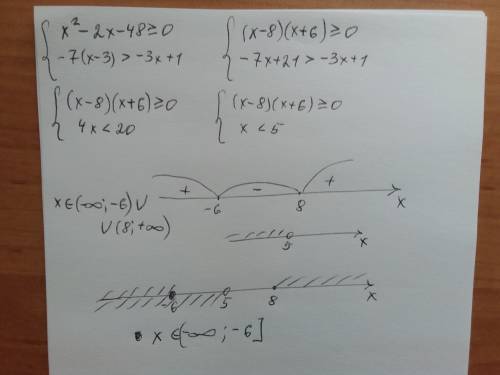 { x² - 2x - 48 ≥ 0
-7(x-3) > -3x+1
{ (x-8)(x+6) ≥ 0
-7x+21 > -3x+1
{ (x-8)(x+6) ≥ 0
4x < 20
{ (x-8)(x+6) ≥ 0
x < 5
+ - +
-6 8 x
x ∈ (-∞; -6) ∪
∪ (8; +∞)
5 x
-6 5 8 x
x ∈ (-∞; -6]